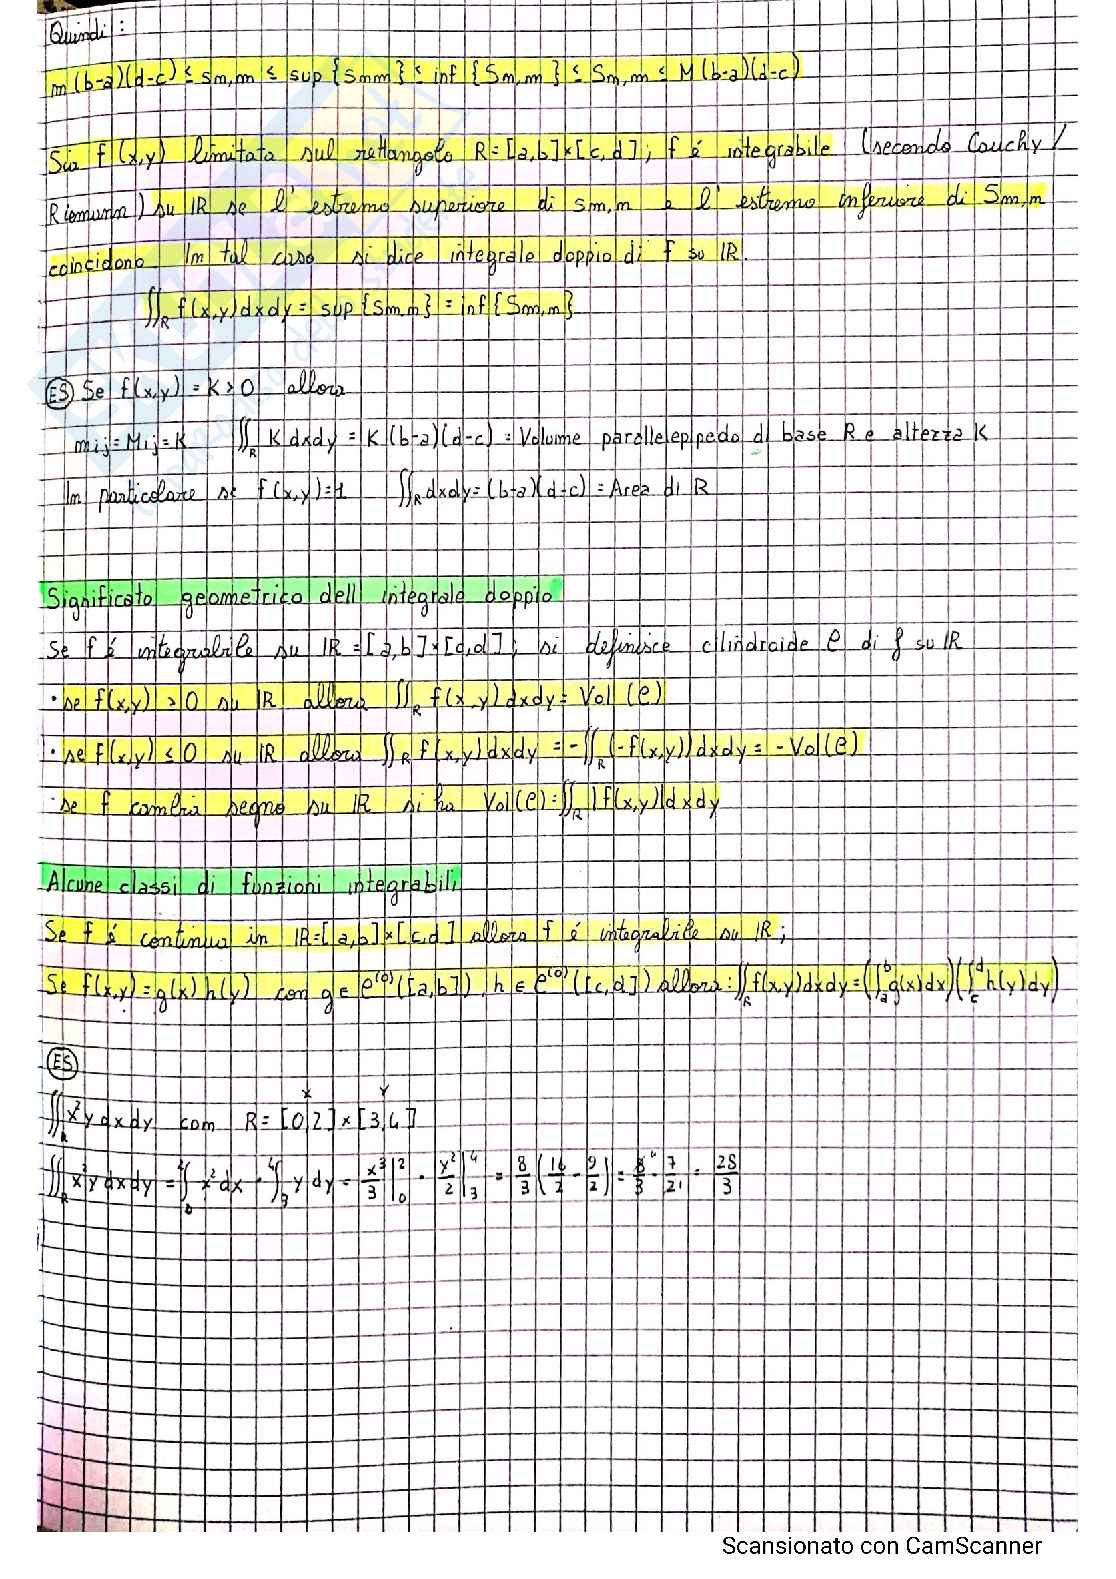 Quindi:
m(b-a)(d-c) ≤ sm,m ≤ sup{smm} ≤ inf{Sm,m} ≤ Sm,m ≤ M(b-a)(d-c)
Sia f(x,y) limitata sul rettangolo R=[a,b]×[c,d]; f é integrabile (secondo Cauchy/
Riemann) su IR se l'estremo superiore di sm,m e l'estremo inferiore di Sm,m
coincidono. In tal caso si dice integrale doppio di f su IR.
∬R f(x,y)dxdy = sup{sm,m} = inf{Sm,m}
ES Se f(x,y) = K > 0 allora
mij = Mij = K ∬R K dxdy = K(b-a)(d-c) = Volume parallelepipedo di base R e altezza K
In particolare se f(x,y)=1 ∬R dxdy = (b-a)(d-c) = Area di R
Significato geometrico dell'integrale doppio
Se f é integrabile su IR = [a,b]×[c,d]; si definisce cilindroide C di f su IR
• se f(x,y) > 0 su IR allora ∬R f(x,y)dxdy = Vol(C)
• se f(x,y) ≤ 0 su IR allora ∬R f(x,y)dxdy = -∬R (-f(x,y))dxdy = -Vol(C)
• se f cambia segno su IR si ha Vol(C) = ∬R |f(x,y)|dxdy
Alcune classi di funzioni integrabili
Se f é continua in IR=[a,b]×[c,d] allora f é integrabile su IR;
Se f(x,y) = g(x)h(y) con g ∈ C⁽⁰⁾([a,b]), h ∈ C⁽⁰⁾([c,d]) allora: ∬R f(x,y)dxdy = (∫ₐᵇ g(x)dx)(∫_c^d h(y)dy)
ES
x y
∬R x²y dxdy com R = [0,2]×[3,4]
∬R x²y dxdy = ∫₀² x²dx · ∫₃⁴ y dy = x³/3 |₀² · y²/2 |₃⁴ = 8/3 (16/2 - 9/2) = 8/3 · 7/2 = 28/3
Scansionato con CamScanner